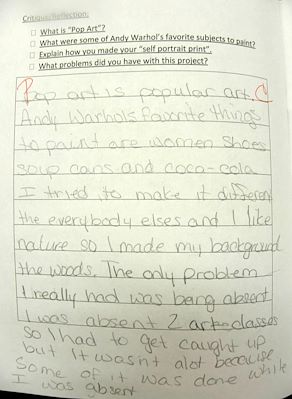 Critique/Reflection:
☐ What is "Pop Art"?
☐ What were some of Andy Warhol's favorite subjects to paint?
☐ Explain how you made your "self portrait print".
☐ What problems did you have with this project?
Pop art is popular art.
Andy Warhols favorite things
to paint are women shoes
soup cans and coco-cola
I tried to make it different
the everybody elses and I like
nature so I made my background
the woods. The only problem
I really had was being absent
I was absent 2 art classes
so I had to get caught up
but It wasnt alot because
Some of it was done while
I was absent